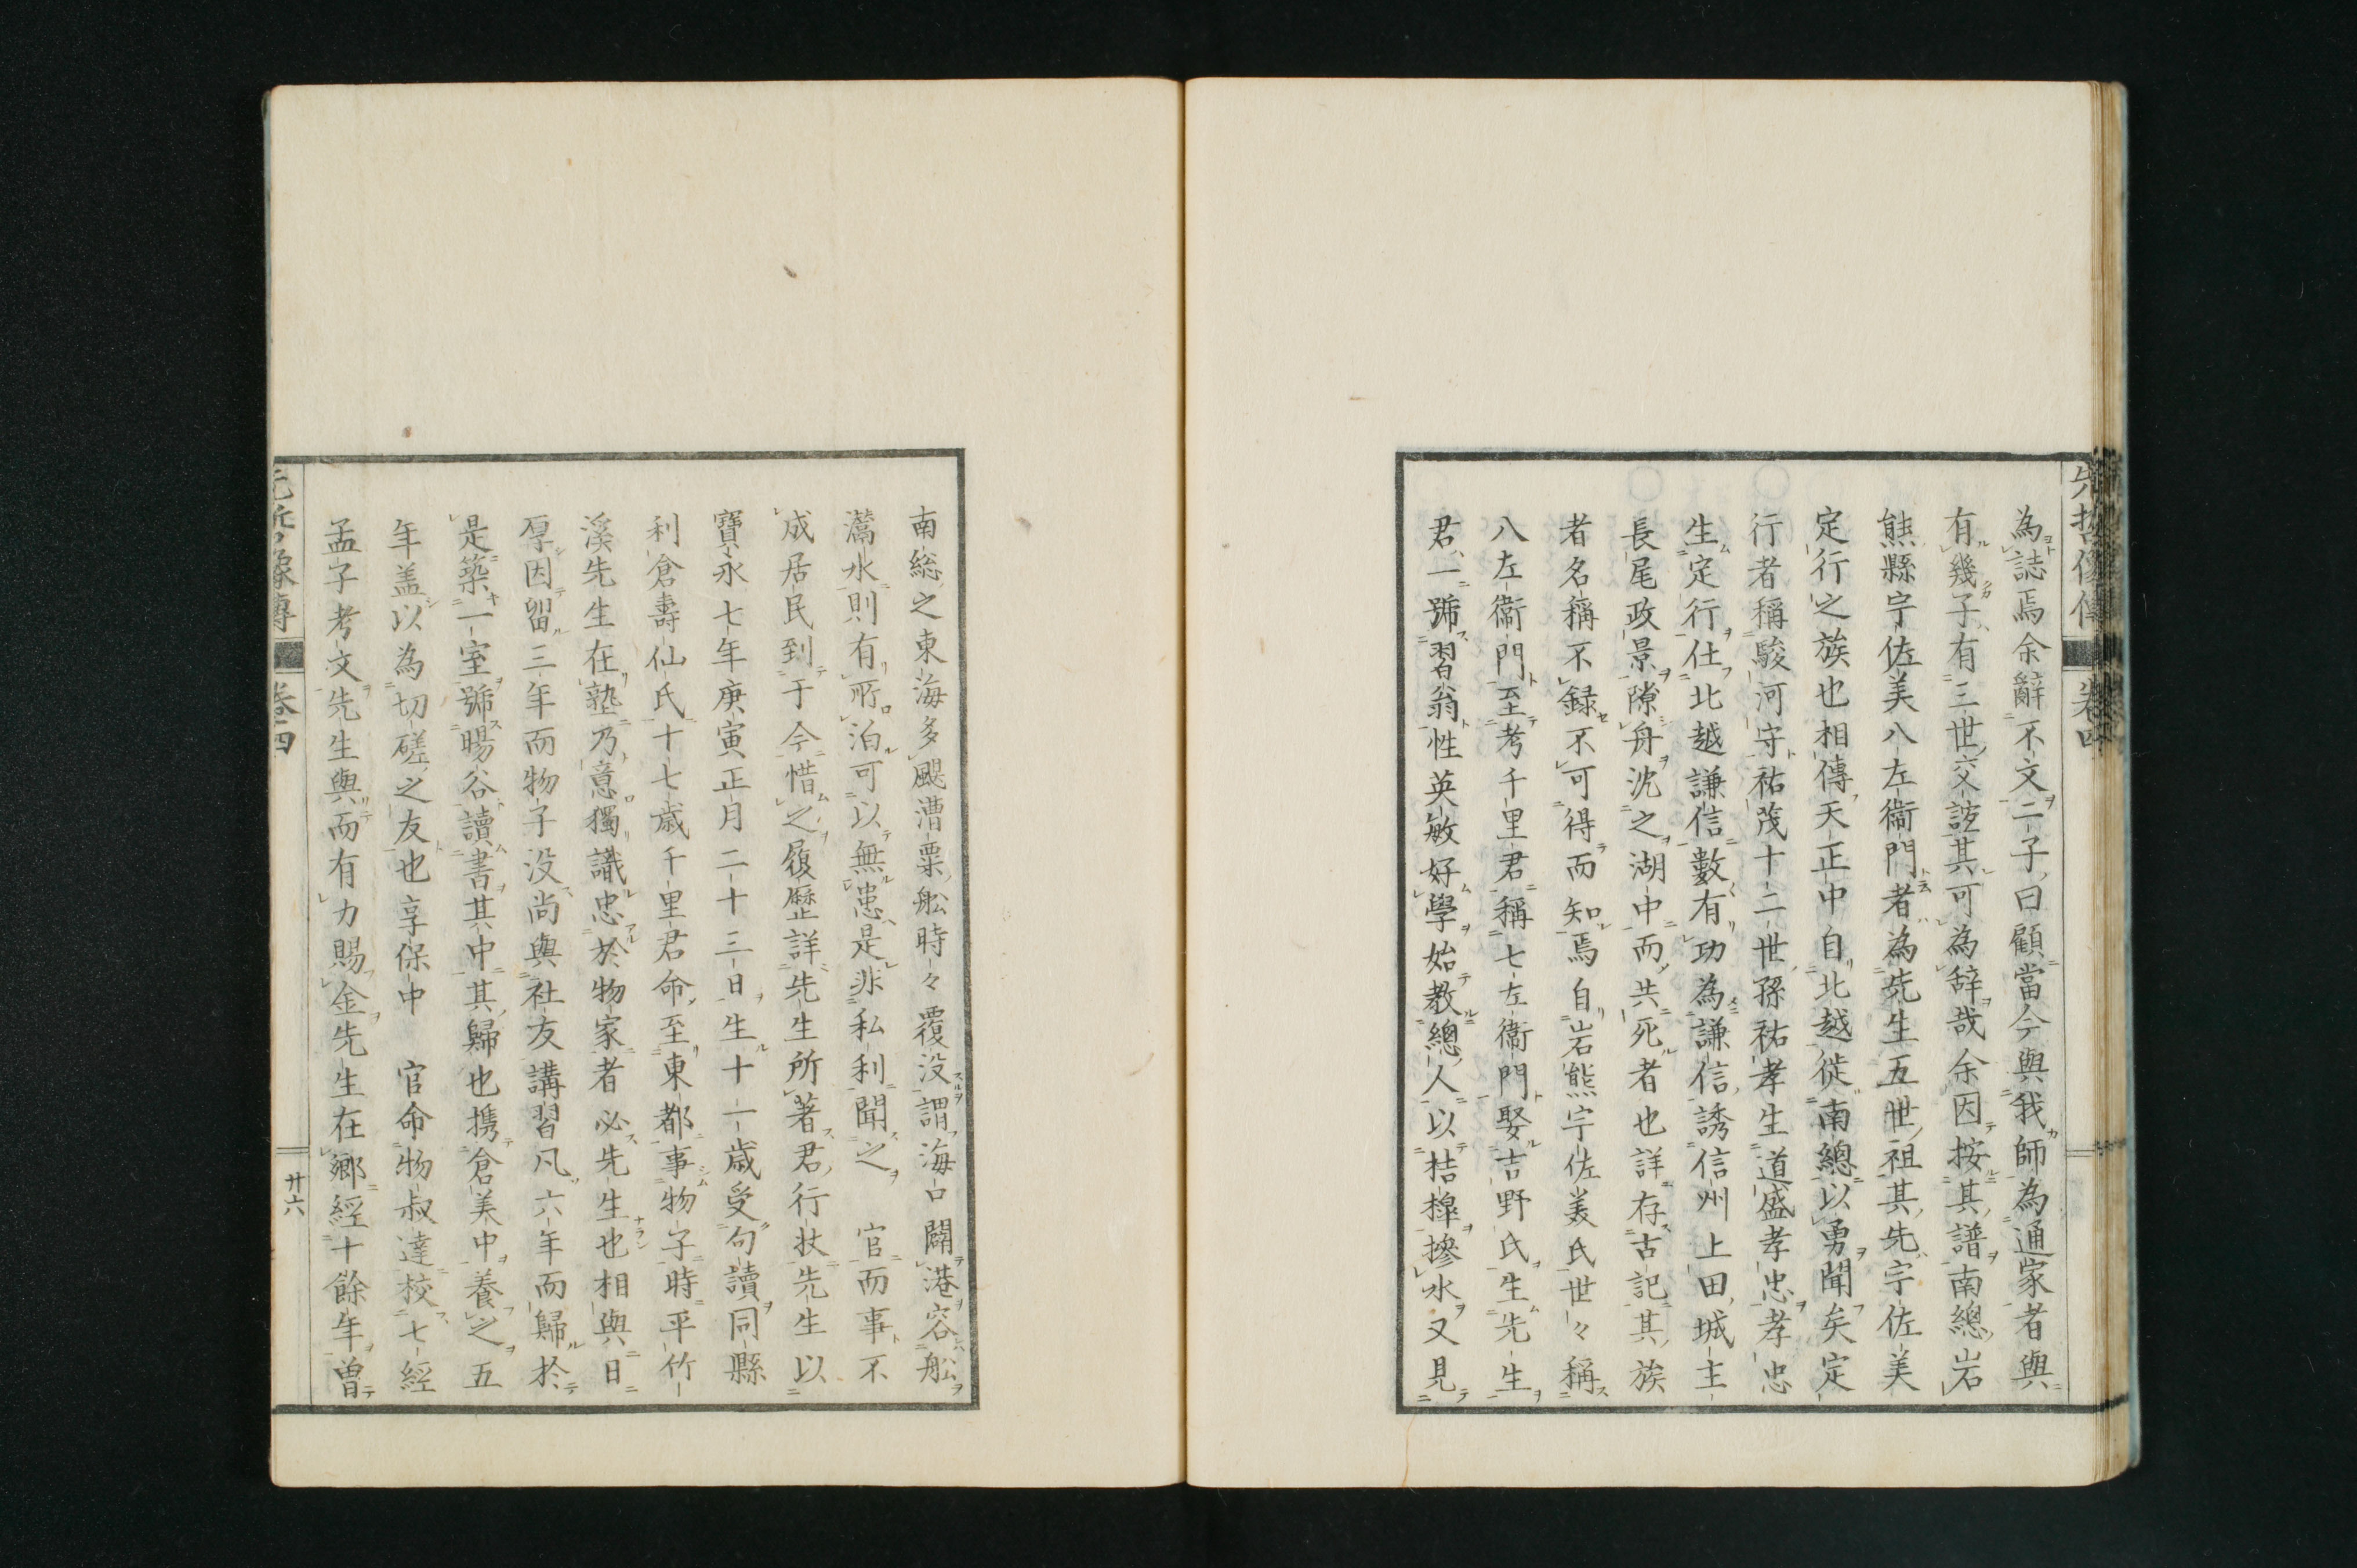 先哲像傳 卷四
為誌焉余辭不文二子曰顧當今與我師為通家者與
有幾子有三世交誼其可為辞哉余因按其譜南總岩
熊縣宇佐美八左衞門者為先生五世祖其先宇佐美
定行之族也相傳天正中自北越徙南總以勇聞矣定
行者稱駿河守祐茂十二世孫祐孝生道盛孝忠孝忠
生定行仕北越謙信數有功為謙信誘信州上田城主
長尾政景隙舟沈之湖中而共死者也詳存古記其族
者名稱不録不可得而知焉自岩熊宇佐美氏世々稱
八左衞門至考千里君稱七左衞門娶吉野氏生先生
君一號習翁性英敏好學始教總人以桔槹摻水又見
南総之東海多颶漕粟舩時々覆没謂海口闢港容舩
濳水則有所泊可以無患是非私利聞之　官而事不
成居民到于今惜之履歴詳先生所著君行状先生以
寶永七年庚寅正月二十三日生十一歳受句讀同縣
利倉壽仙氏十七歳千里君命至東都事物子時平竹
溪先生在塾乃意獨識忠於物家者必先生也相與日
厚因留三年而物子没尚與社友講習凡六年而歸於
是築一室號暘谷讀書其中其歸也携倉美中養之五
年盖以為切磋之友也享保中　官命物叔達校七經
孟子考文先生與而有力賜金先生在郷經十餘年曽
卷四
廿六